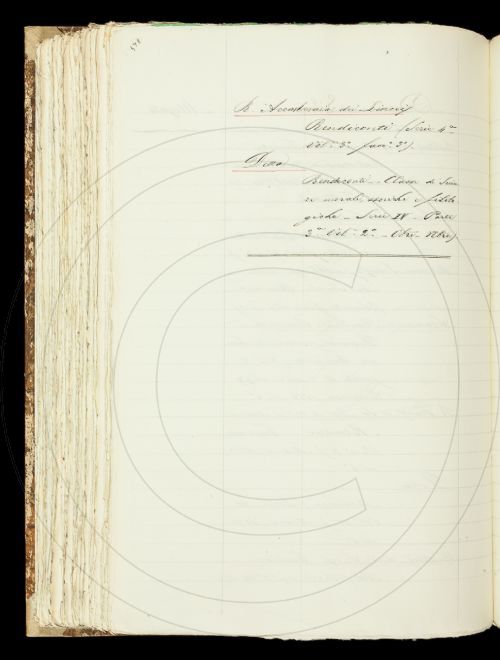 R. Accademia dei Lincei
Rendiconti (Serie 4a
Vol. 3o fasc. 3o).
Detta
Rendiconti - Classe di Scien
ze morali, storiche e filolo
giche - Serie IV - Parte
3a Vol. 2o -